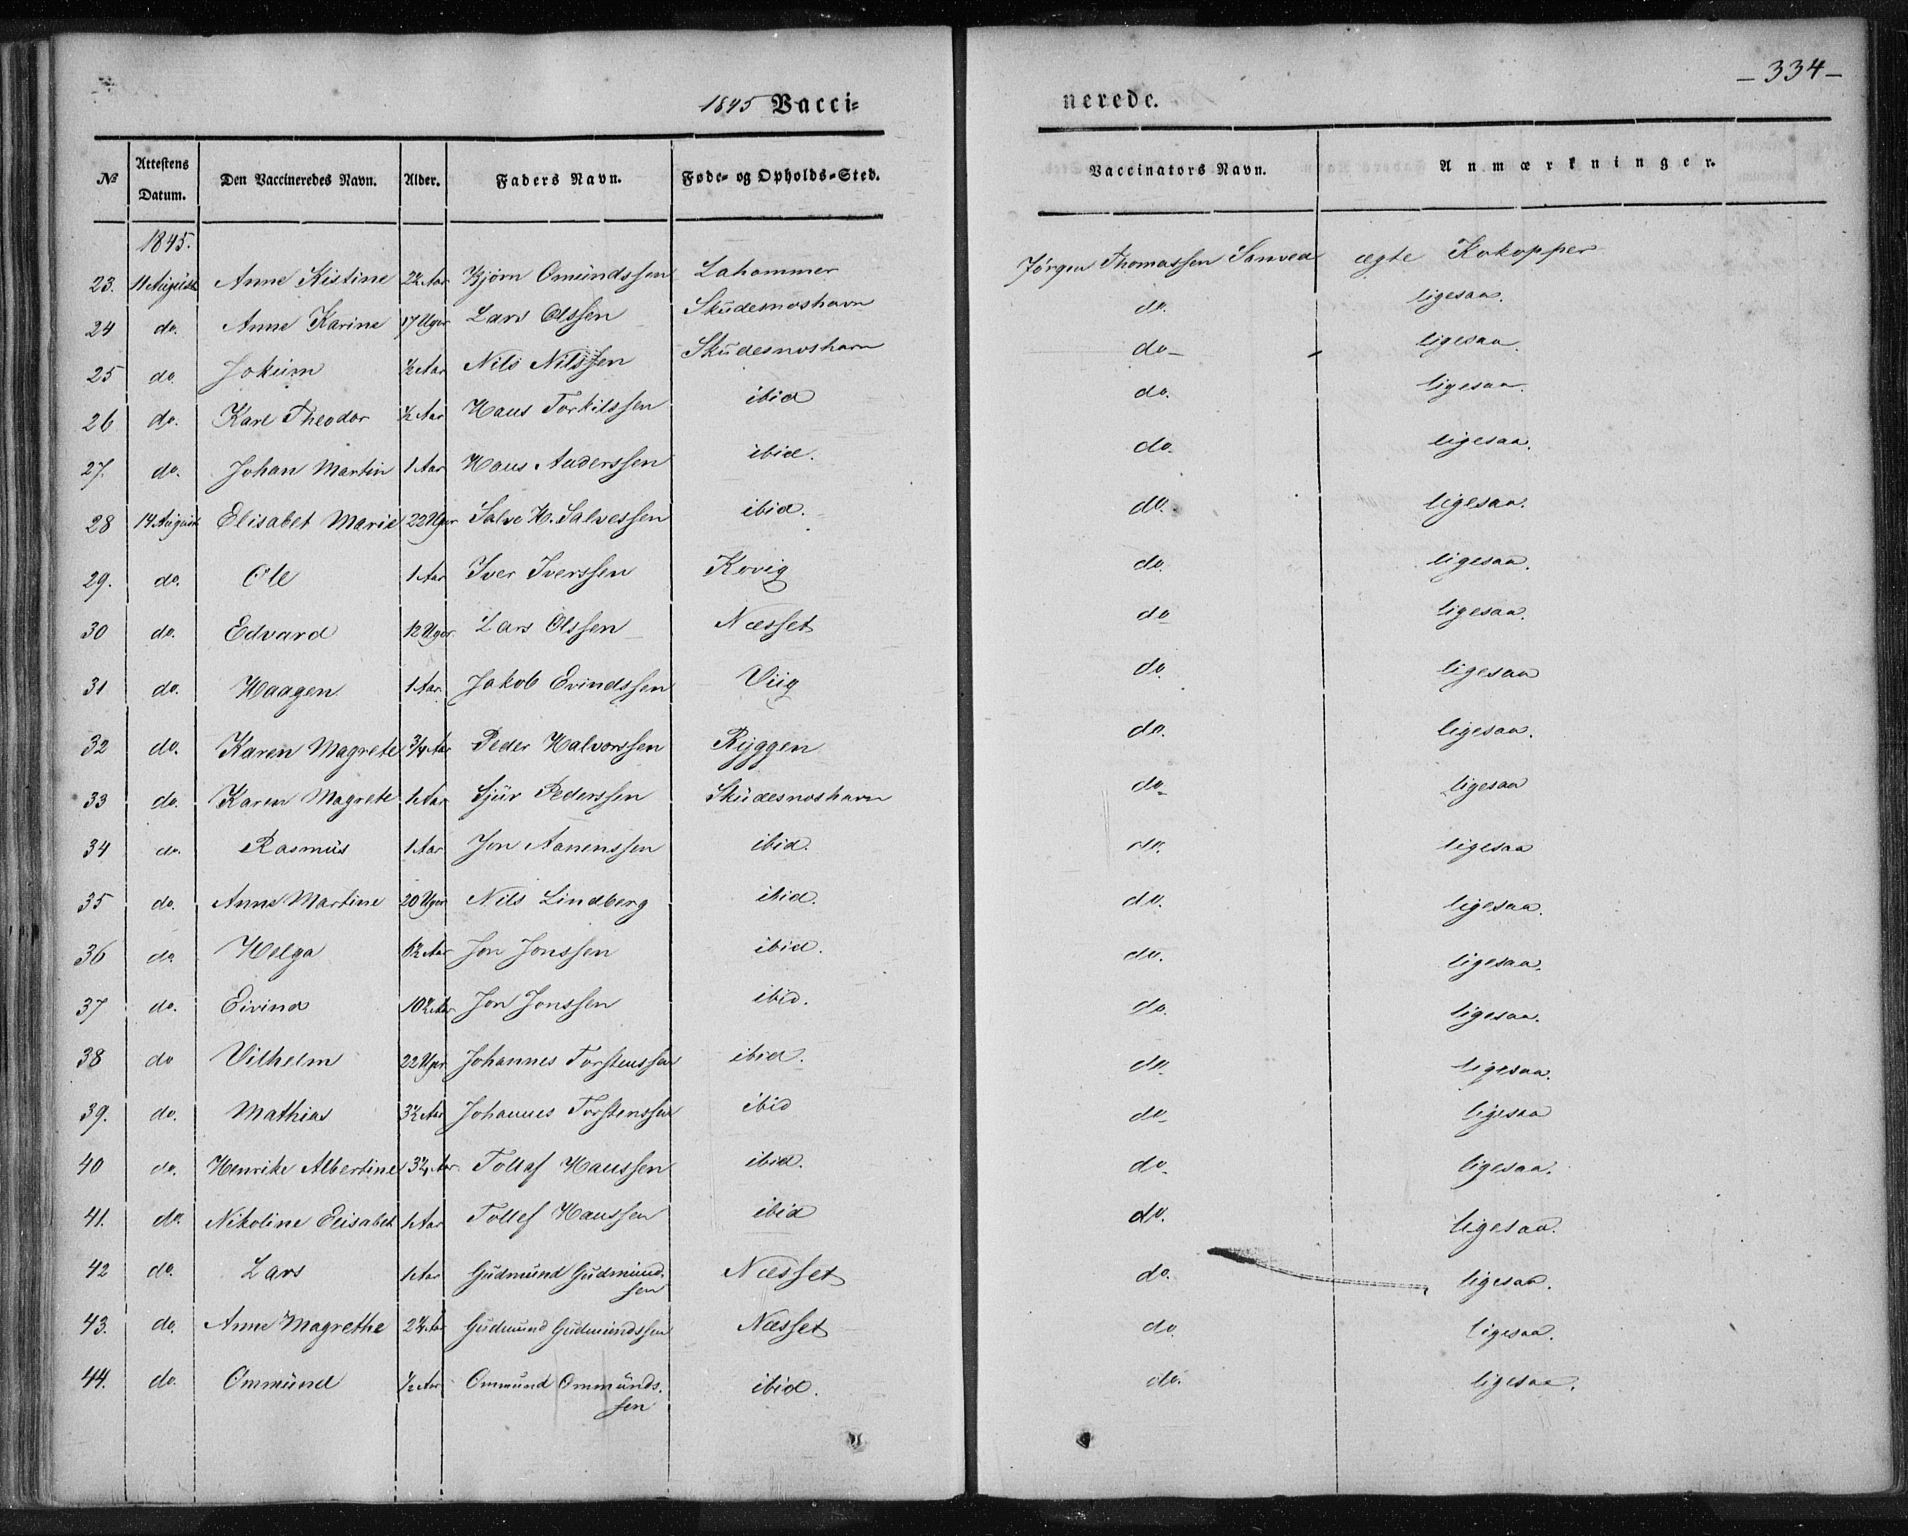 -334-
1845 Vacci=
nerede.
№ Attestens Datum. Den Vaccineredes Navn. Alder. Faders Navn. Føde- og Opholds-Sted. Vaccinators Navn. Anmærkninger.
1845.
23. 11 August Anne Kistine 2½ Aar Bjørn Omundssen Lahammer Jørgen Thomassen Sanved ægte Kokopper
24 do. Anne Karine 17 Uger Lars Olssen Skudesnæshavn do. ligesaa.
25 do. Jokum ½ Aar Nils Nilssen Skudesnæshavn do- ligesaa.
26 do. Karl Theodor ½ Aar Hans Torkilssen ibid do. ligesaa.
27. do. Johan Martin 1 Aar Hans Anderssen ibid. do. ligesaa.
28 14 August Elisabet Marie 22 Uger Salve H. Salvessen ibid. do. ligesaa.
29. do. Ole 1 Aar Iver Iverssen Kovig do. ligesaa.
30 do. Edvard 12 Uger Lars Olssen Næsset do ligesaa.
31 do. Haagen 1 Aar Jakob Evindssen Viig do. ligesaa
32 do. Karen Magrete ¾ Aar Peder Halvorssen Ryggen do. ligesaa.
33 do. Karen Magrete 1 Aar Sjur Pederssen Skudesnæshavn do. ligesaa
34 do. Rasmus 1 Aar Jon Aanenssen ibid. do. ligesaa
35 do. Anne Martine 20 Uger Nils Lindberg ibid. do. ligesaa.
36 do Helga Aar Jon Jonssen ibid. do. ligesaa.
37 do. Eivind 10½ Aar Jon Jonssen ibid. do. ligesaa.
38 do Vilhelm 22 Uger Johannes Torstenssen ibid. do. ligesaa.
39. do. Mathias 3½ Aar Johannes Torstenssen ibid do. ligesaa
40 do. Henrike Albertine Aar Tollef Hanssen ibid. do. ligesaa.
41. do. Nikoline Elisabet 1 Aar Tollef Hanssen ibid do. ligesaa.
42 do. Lars 1 Aar Gudmund Gudmund-
sen Næsset do. ligesaa.
43. do. Anne Magrethe Aar Gudmund Gudmundssen Næsset do. ligesaa.
44. do. Ommund ½ Aar Ommund Ommunds-
sen ibid. do. ligesaa.